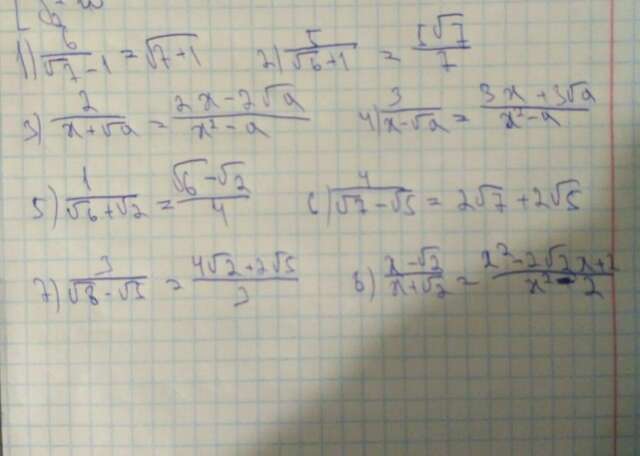 1) 6/(√7-1) = √7+1 2) 5/(√6+1) = 5√7/7
3) 2/(x+√a) = (2x-2√a)/(x²-a) 4) 3/(x-√a) = (3x+3√a)/(x²-a)
5) 1/(√6+√2) = (√6-√2)/4 6) 4/(√7-√5) = 2√7+2√5
7) 3/(√8-√5) = (4√2+2√5)/3 8) (x-√2)/(x+√2) = (x²-2√2x+2)/(x²-2)